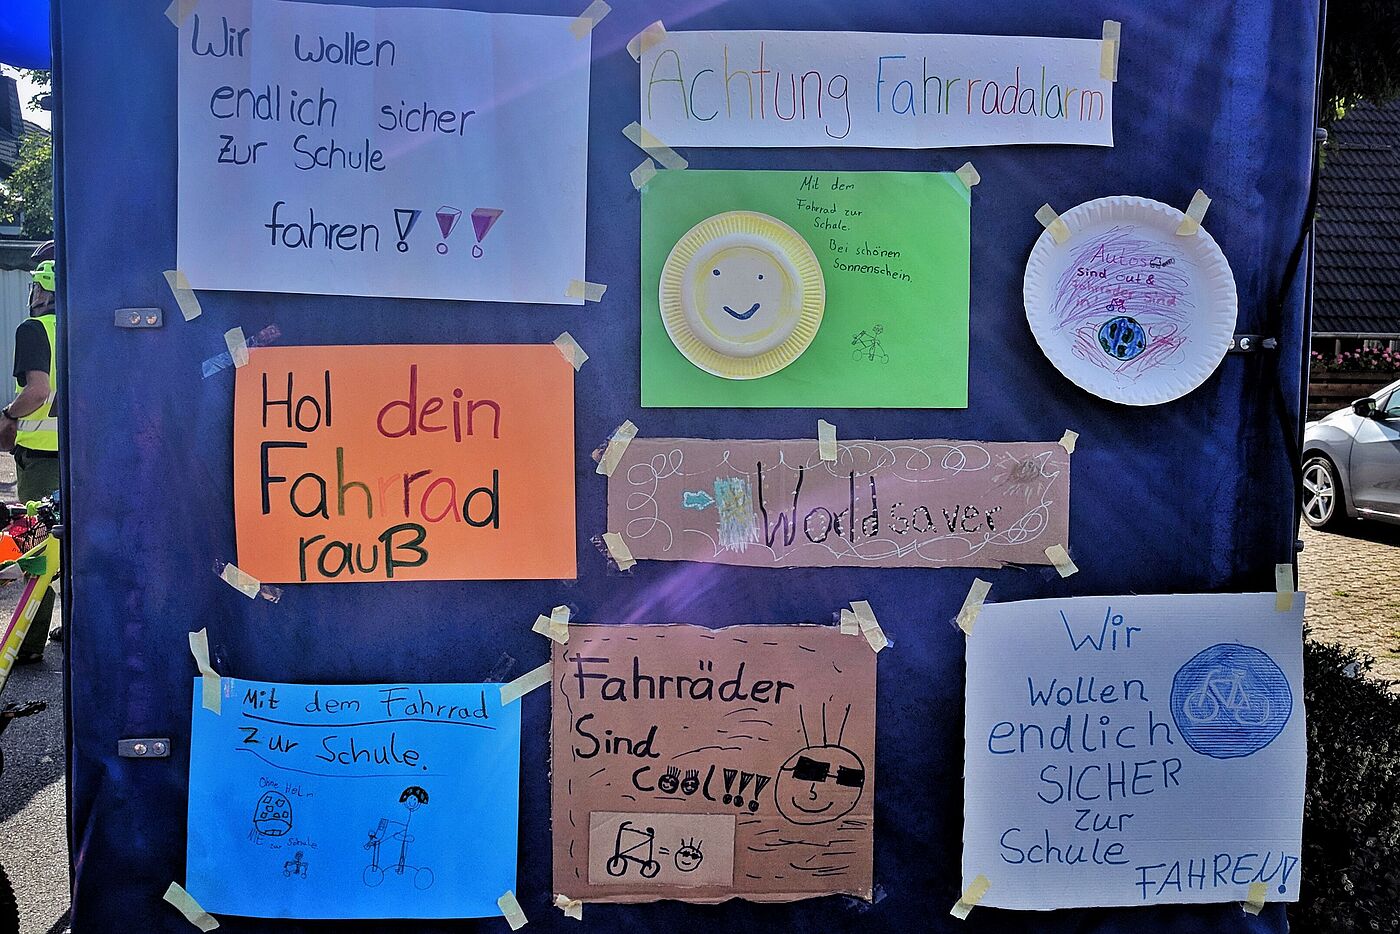 Wir wollen
endlich sicher
zur Schule
fahren!!!
Achtung Fahrradalarm
Mit dem
Fahrrad zur
Schule.
Bei schönen
Sonnenschein.
Autos
sind out &
Fahrräder sind
in!
Hol dein
Fahrrad
rauß
Worldsaver
Mit dem Fahrrad
zur Schule.
Ohne Helm
zur Schule
Fahrräder
Sind
cool!!!
=
Wir
wollen
endlich
SICHER
zur
Schule
FAHREN!